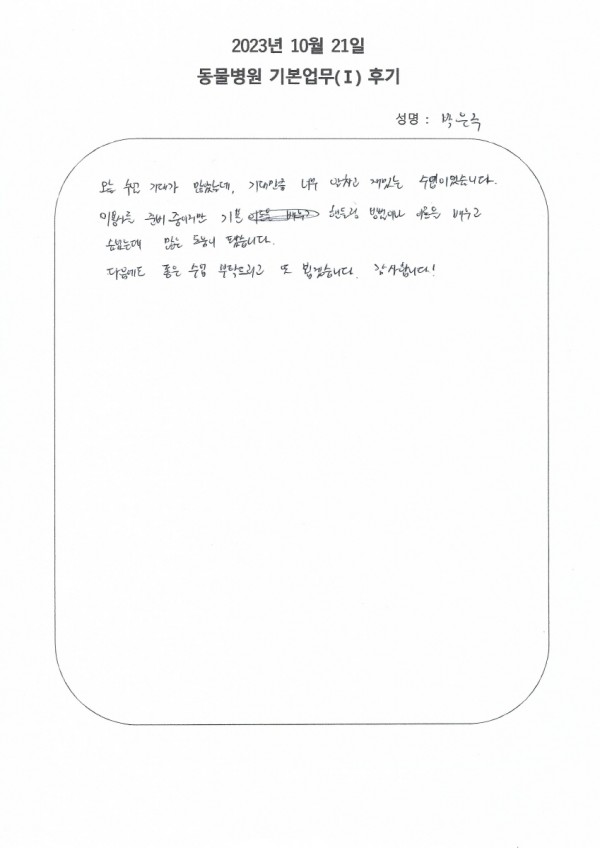 2023년 10월 21일
동물병원 기본업무(I) 후기
성명 : 박은주
오늘 기대가 많았는데, 기대만큼 너무 알차고 재밌는 수업이었습니다.
미용사를 준비 중이지만 기본 핸들링 방법이나 이론을 배우고
많은 도움이 됐습니다.
다음에도 좋은 수업 부탁드리고 또 뵙겠습니다. 감사합니다!